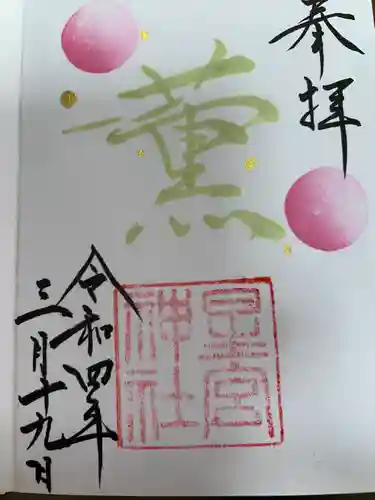 奉拝
薫
早宮
神社
令和四年
三月十九日